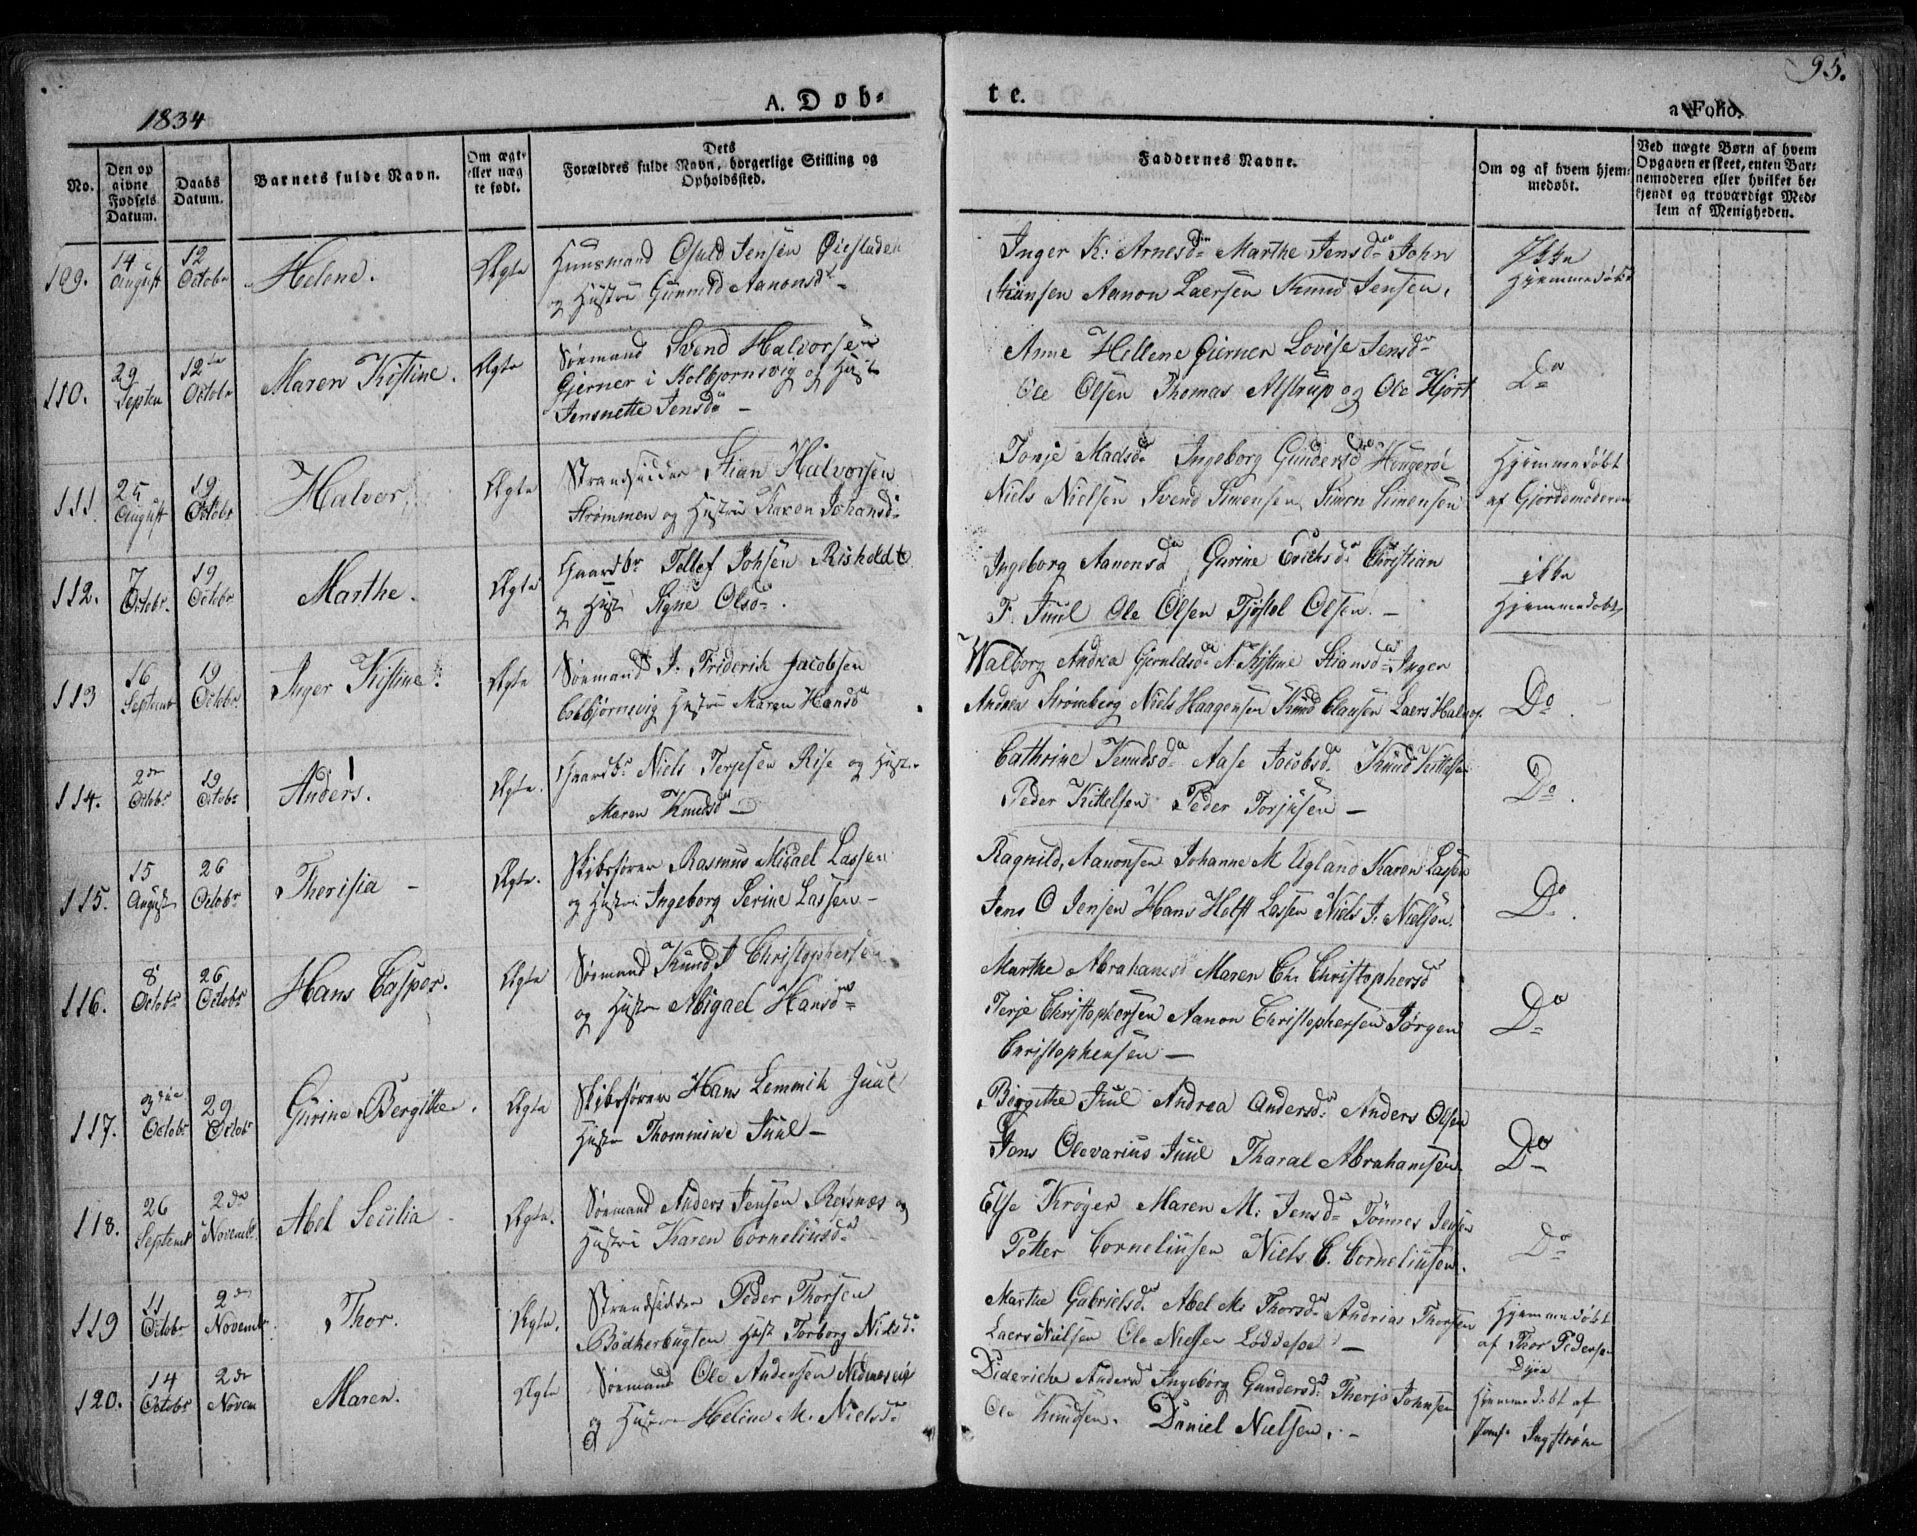 95.
1834
A. Døb-
te.
a Folio.
No.
Den op
givne
Fødsels
Datum.
Daabs
Datum.
Barnets fulde Navn.
Om ægte
eller næg
te født.
Dets
Forældres fulde Navn, borgerlige Stilling og
Opholdssted.
Faddernes Navne.
Om og af hvem hjem-
medøbt.
Ved nægte Børn af hvem
Opgaven er skeet, enten Bar-
nemoderen eller hvilket be-
kjendt og troværdigt Med-
lem af Menigheden.
109.
14 August
12 Octobr
Helene.
Ægte
Huusmand Osuld Jensen Øiestaden
og Hustru Gunnild Aanonsdr
Inger K: Arnesdr Marthe Jensdr John
Aanon Laersen Knud Jensen.
Ikke
Hjemmedøbt
110.
29 Septem
12te Octobr
Maren Kistine.
Ægte
Sømand Svend Halvorsen
Gjerner i Kolbjørnsvig og Hust
Jensnette Jensdr
Anne Hellene Gjerner Lovise Jensdr
Ole Olsen Thomas Alstrup og Ole Hjort
Do
111
25 August
19 Octobr
Halvor.
Ægte
Strandsidder Stian Halvorsen
Strømmen og Hustru Karen Johansdr
Tonje Madsdr Ingeborg Gundersdr Hengerøe
Niels Nielsen Svend Simensen Simon Simensen
Hjemmedøbt
af Gjordemoderen
112.
7 Octobr.
19 Octobr
Marthe.
Ægte
Gaardbr Tellef Johsen Risholdt
og Hust Signe Olsdr.
Ingeborg Aanonsdr Gurine Erichsdr Christian
F. Juul Ole Olsen Tjøstol Olsen.
ikke
Hjemmedøbt
113
16 Septembr
19 Octobr
Inger Kistine.
Ægte
Sømand J. Friderik Jacobsen
Colbjørnsvig Hustru Maren Hansdr
Walborg Andrea Gjeruldsdr A. Kistine Stiansdr Inger
Andrea Strømberg Niels Haagensen Knud Clausen Laers Halvor
Do
114.
2den Octobr
19 Octobr
Anders.
Ægte.
Gaardbr. Niels Terjesen Rise og Hustr
Maren Knudsdr
Cathrine Knudsdr Aase Jacobsdr Knud Kittelsen
Peder Kittelsen Peder Torjusen
Do.
115.
15 August
26 Octobr
Therisia
Ægte.
Skibsfører Rasmus Micael Lassen
og Hustru Ingeborg Serine Lassen
Ragnild, Aanonsen Johanne M Ugland Karen Lassen
Jens O Jensen Hans Holst Lassen Niels J. Nielsen.
Do.
116.
8 Octobr
26 Octobr
Hans Casper.
Ægte
Sømand Knud J Christophersen
og Hustr Abigael Hansdr
Marthe Abrahamsd Maren Chr Christophersdr
Terje Christophersen Aanon Christophersen Jørgen
Christophensen
Do
117.
3die Octobr
29 Octobr
Gurine Bergitte.
Ægte
Skibsfører Hans Lemmik Juul
Hustr Thommine Juul
Birgithe Juul Andrea Andersdr: Anders Olsen
Jens Olevarius Juul Tharal Abrahamsen
Do
118.
26 Septembr
2den Novembr
Abel Secilia
Ægte.
Sømand Anders Jensen Revsnes og
Hustru Karen Corneliusdr
Else Krøger Maren M: Jensdr Tønnes Jensen
Petter Corneliusen Niels C. Corneliusen.
Do
119
11 Octobr
2den Novembr
Thor.
Ægte.
Strandsidder Peder Thorsen
Bødkerbugten Hust Torborg Nielsdr
Marthe Gabrielsdr Abel M: Thorsdr Andrias Thorsen
Laers Nielsen Ole Nielsen Loddesøe
Hjemmedøbt
af Thor Pedersen
120.
14 Octobr
2den Novem
Maren.
Ægte
Sømand Ole Andersen Nidenesøen
og Hustru Heline M. Nielsdr
Diderichs Andersd Ingeborg Gundersdr Therje Johnsen
Ole Knudsen. Daniel Nielsen.
Hjemmedøbt af
Ingstrøm